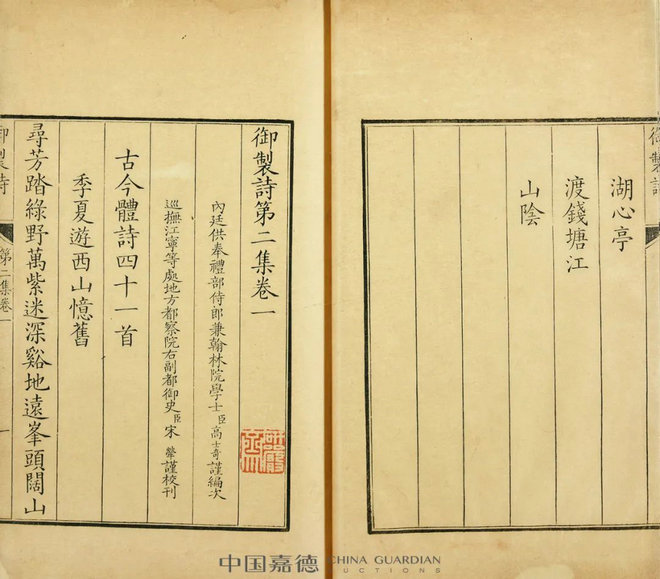 御製詩
湖心亭
渡錢塘江
山陰
御製詩第二集卷一
內廷供奉禮部侍郎兼翰林院學士臣高士奇謹編次
巡撫江寧等處地方都察院右副都御史臣宋犖謹校刊
古今體詩四十一首
季夏遊西山憶舊
尋芳踏綠野萬紫迷深谿地遠峯頭闊山
御製詩
第二集卷一
中国嘉德
CHINA GUARDIAN
AUCTIONS